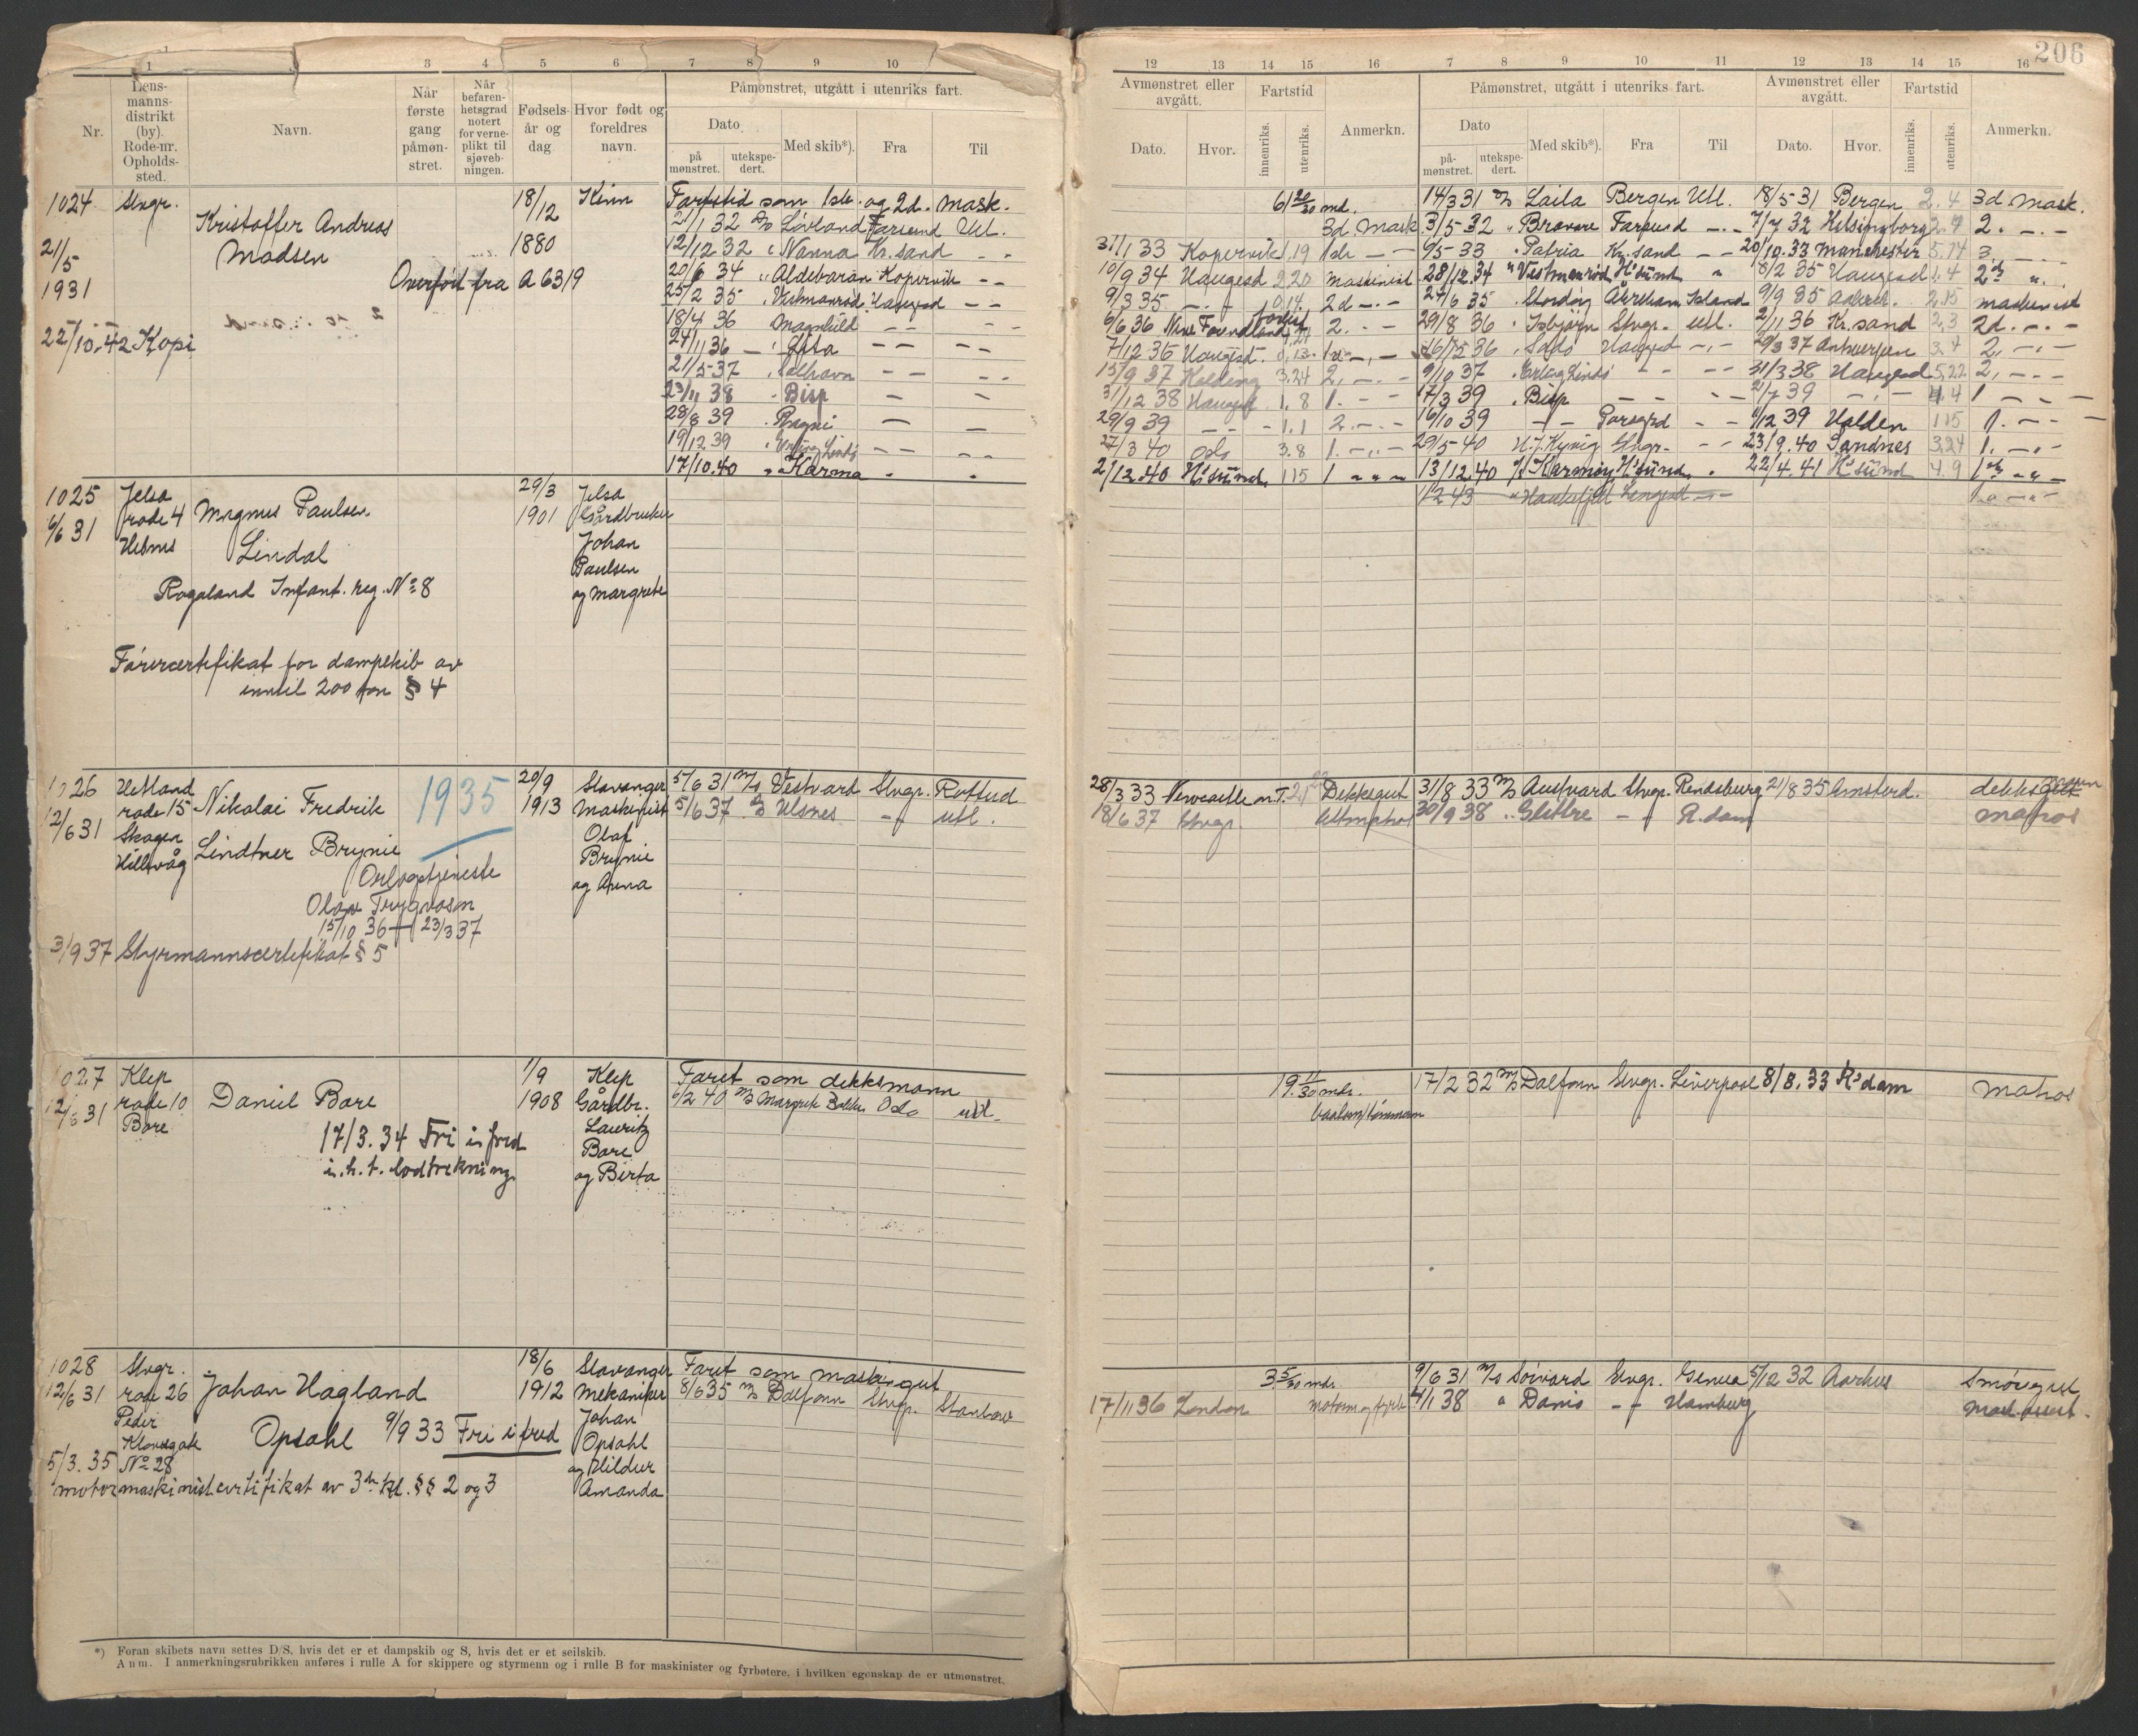 206
1 3 4 5 6 7 8 9 10
Nr.
Lens-
manns-
distrikt
(by).
Rode-nr.
Opholds-
sted.
Navn.
Når
første
gang
påmøn-
stret.
Når
befaren-
hetsgrad
notert
for verne-
plikt til
sjøveb-
ningen.
Fødsels-
år og
dag
Hvor født og
foreldres
navn.
Påmønstret, utgått i utenriks fart.
Dato
på
mønstret.
utekspe-
dert.
Med skib*).
Fra
Til
12 13 14 15 16 7 8 9 10 11 12 13 14 15 16
Avmønstret eller
avgått.
Dato.
Hvor.
Fartstid
innenriks.
utenriks.
Anmerkn.
Påmønstret, utgått i utenriks fart.
Dato
på-
mønstret.
utekspe-
dert.
Med skib*).
Fra
Til
Avmønstret eller
avgått.
Dato.
Hvor.
Fartstid
innenriks.
utenriks.
Anmerkn.
1024 Stvgr.
Kristoffer Andreas
Madsen
21/5
1931
Overført fra A 6319
22/10.42 Kopi
18/12
1880
Kinn
Fartstid som 1ste og 2d. mask.
21/1 32 Lövland Farsund Utl.
12/12 32 " Nanna Kr.sand - -
20/6 34 " Aldebaran Kopervik - -
25/2 35 " Vestmanrød Haugesd - -
18/4 36 Magnhild - - - -
27/11 36 - - - -
21/5-37 - - - -
23/11 38 " Bisp - -
28/8 39 . Ragni - -
19/12 39 " Erling Lindö - -
17/10.40 " Karma " "
6 20/30 md. 14/3 31 Laila Bergen Utl. 18/5-31 Bergen 2.4 3d mask.
3d. Mask 3/5-32 " Bravore Farsund - - 7/7 32 Helsingborg 2. - . -
31/1 33 Kopervik 1,19 1ste - - 9/5-33 . Patria Kr.sand - - 20/10.33 Manchester 5,14 3.
10/9 34 Haugesd 2,20 Maskinist 28/12.34 " Vestmanrød H'sund " 8/2 35 Haugesd 1.4 2d
9/3 35 - . - 0,14. 2d - . - 27/6 35 . Åkrehamn Island 9/9 35 2,15 maskinist
6/6 36 New Foundland 2. - . - 29/8 36 . Isbjørn Stvgr. Utl. 2/11 36 Kr.sand 2,3 2d. - . -
7/12 36 Haugesd. 16/12 36 Haugesd - . - 29/3 37 Antwerpen 3.4 2, - . -
15/9 37 Kolding 3.24 2, - . - 9/10 37 . Erling Lindö - - - - 31/3 38 Haugesd 5,22 2, - . -
31/12 38 Haugesd 1,8 1. - . - 17/3 39 . Bisp - - - - 21/7 39 - . - 4,4 1 - - -
29/9 39 - - - 1.1 2. - . - 16/10 39 - - Porsgrd - - 1/12 39 Halden 1,15 1. - - -
27/3 40 Oslo 3.8 1. - . - 29/5-40 H.J. Kyvig Stvgr. - - 23/9.40 Sandnes 3,24 1. - . -
2/12.40 H'sund. 1,15 1 " " " 13/12.40 Karmöy H'sund " 22/4.41 H'sund 4.9 1ste " "
1/2 43 " Haukefjell Lengesd - . -
1025
6/6 31
Jelsa
rode 4
Hebnes
Magnus Paulsen
Lindal
Rogaland Infant. reg. No 8
29/3
1901
Jelsa
Gårdbruker
Johan
Paulsen
og Margrete
Førercertifikat for dampskib av
inntil 200 ton § 4
1026
12/6 31
Hetland
rode 15
Skagen
Hillevåg
Nikolai Fredrik
Lindtner Brynie
1935
Orlogstjeneste
Olav Trygvason
15/10 36 - 23/3 37
3/9 37 Styrmannscertifikat § 5
20/9
1913
Stavanger
Maskinist
Olaf
Brynie
og Anna
5/6 31 M/s Vestvard Stvgr. Rottud
5/6 37 Ulsnes - " - utl.
28/3 33 Newcastle on T. Dekksgut 31/8 33 M/s Austvard Stvgr. Rendsburg 21/8 35 Amsterd. dekksgutt
18/6 37 Stvgr. lettmatros 30/9 38 " Glittre - " - R.dam matros
1027
12/6 31
Klep
rode 10
Bore
Daniel Bore
17/3.34 Fri i fred
i.h.t. lodtrekning.
1/9
1908
Klep
Gårdbr.
Lauritz
Bore
og Berta
Faret som dekksmann
6/2 40 M/s Margrete Bakke Oslo utl.
19 11/30 mdr.
baatsm/tömmerm
17/2 32 M/s Dalfonn Stvgr. Liverpool 8/8.33 R'dam matros
1028
12/6 31
Stvgr.
rode 26
Peder
Klowsgate
No 28
Johan Hagland
Opsahl
9/9 33 Fri i fred
5/3.35
motormaskinistcertifikat av 3dje kl. §§ 2 og 3
18/6
1912
Stavanger
Mekaniker
Johan
Opsahl
og Hildur
Amanda
Faret som maskingut
8/6 35 M/s Dalfonn Stvgr. Stanlow
3 5/30 mdr. 9/6 31 M/s Sörvard Stvgr. Genua 5/12 32 Aarhus Smöregut
17/11 36 London 4/1 38 " Danis - " - Hamburg Mask.assist.
*) Foran skibets navn settes D/S, hvis det er et dampskib og S, hvis det er et seilskib.
Anm. I anmerkningsrubrikken anføres i rulle A for skippere og styrmenn og i rulle B for maskinister og fyrbøtere, i hvilken egenskap de er utmønstret.